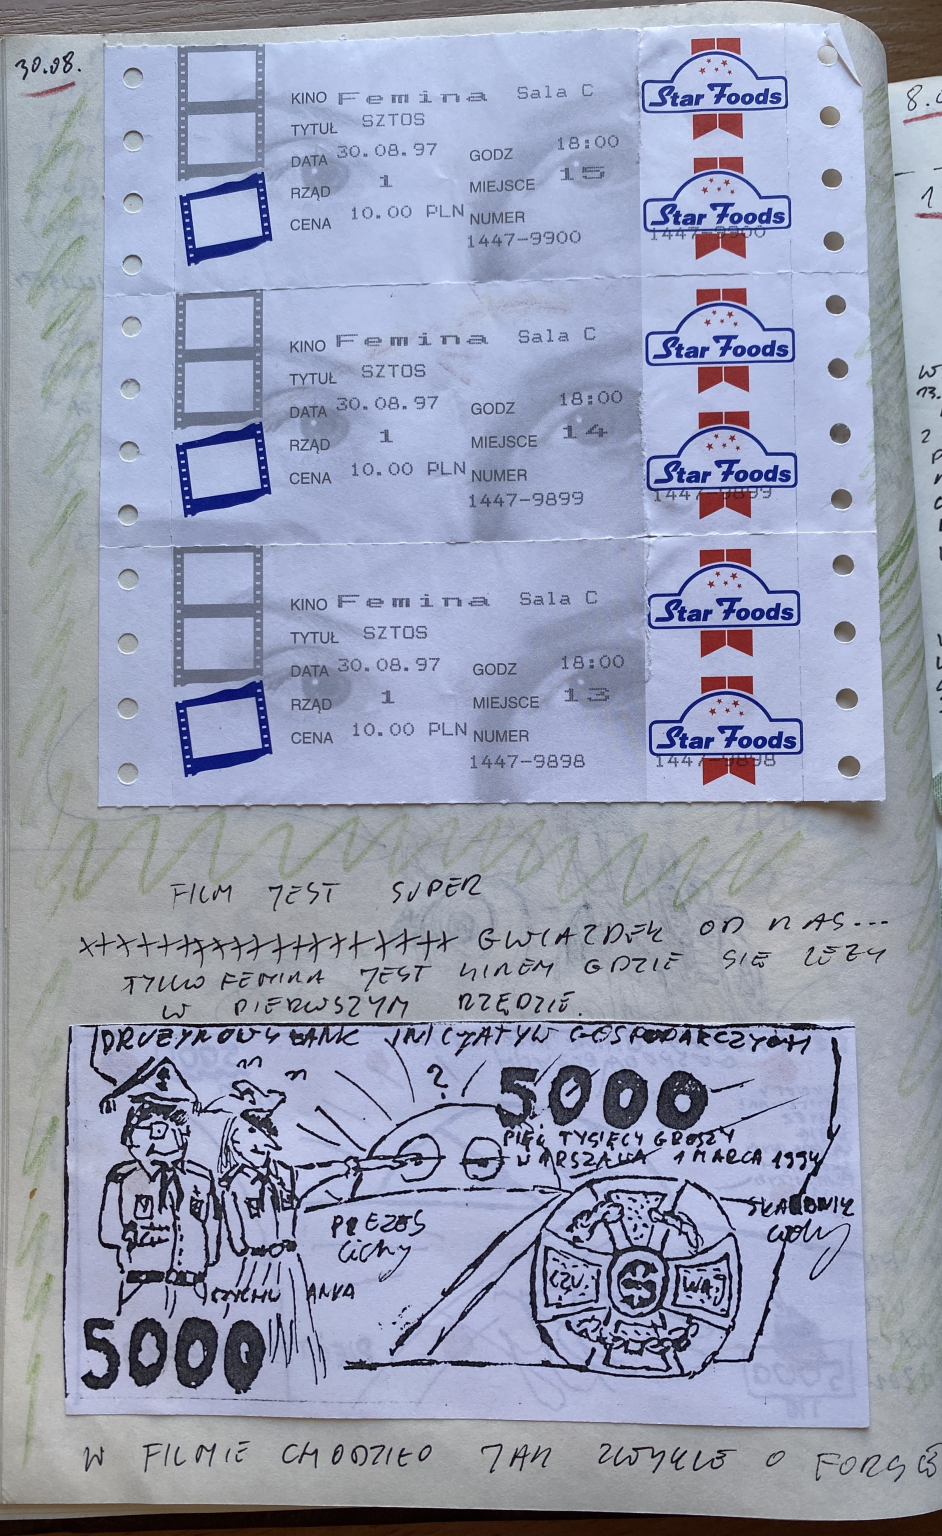 30.08.
KINO Femina Sala C
TYTUŁ SZTOS
DATA 30.08.97 GODZ 18:00
RZĄD 1 MIEJSCE 15
CENA 10.00 PLN NUMER
1447-9900
Star Foods
Star Foods
1447-9900
KINO Femina Sala C
TYTUŁ SZTOS
DATA 30.08.97 GODZ 18:00
RZĄD 1 MIEJSCE 14
CENA 10.00 PLN NUMER
1447-9899
Star Foods
Star Foods
1447-9899
KINO Femina Sala C
TYTUŁ SZTOS
DATA 30.08.97 GODZ 18:00
RZĄD 1 MIEJSCE 13
CENA 10.00 PLN NUMER
1447-9898
Star Foods
Star Foods
1447-9898
FILM JEST SUPER
GWIAZDEK OD NAS...
TYLKO FEMINA JEST KINEM GDZIE SIĘ LEŻY
W PIERWSZYM RZĘDZIE.
DRUŻYNOWY BANK INICJATYW GOSPODARCZYCH
? 5000
PIĘĆ TYSIĘCY GROSZY
WARSZAWA 1 MARCA 1994
PREZES
Cichy
SKARBNIK
CZU WAJ
S
ANKA
5000
W FILMIE CHODZIŁO JAK ZWYKLE O FORSĘ